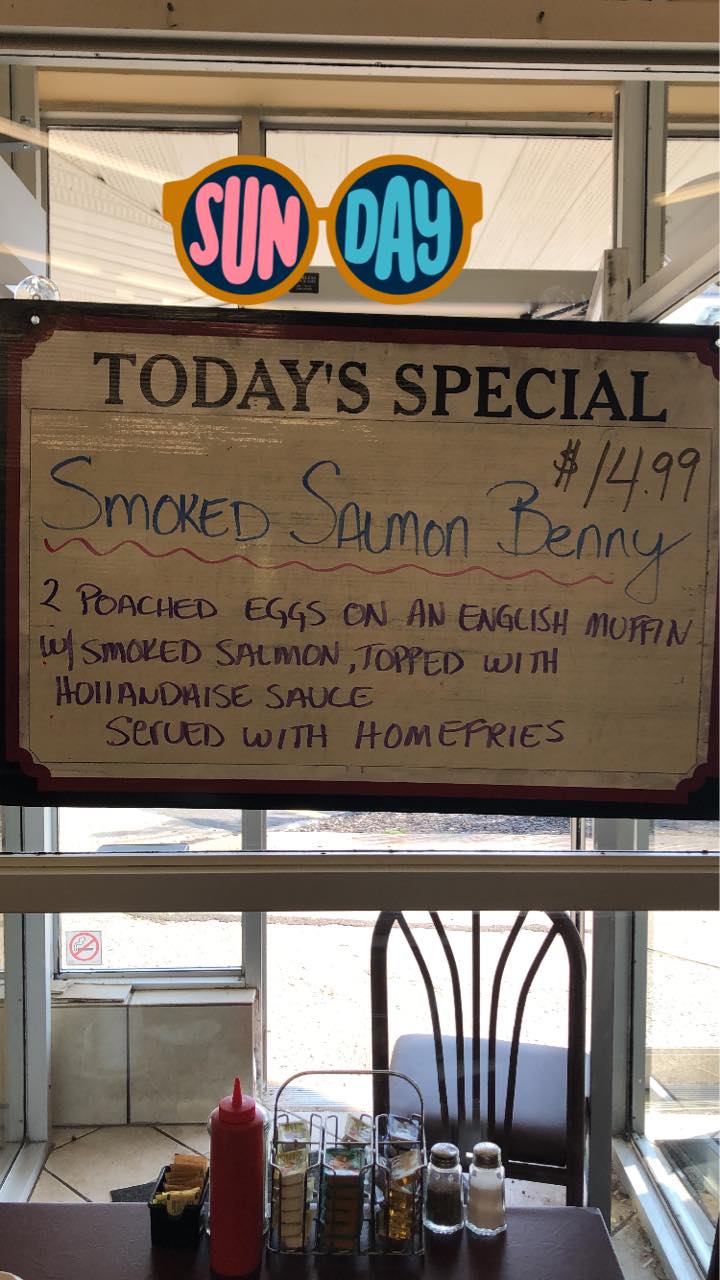 SUN DAY
TODAY'S SPECIAL
$14.99
SMOKED SALMON Benny
2 POACHED EGGS ON AN ENGLISH MUFFIN
W/ SMOKED SALMON, TOPPED WITH
HOllANDAISE SAUCE
SerVED WITH HOMEFRIES